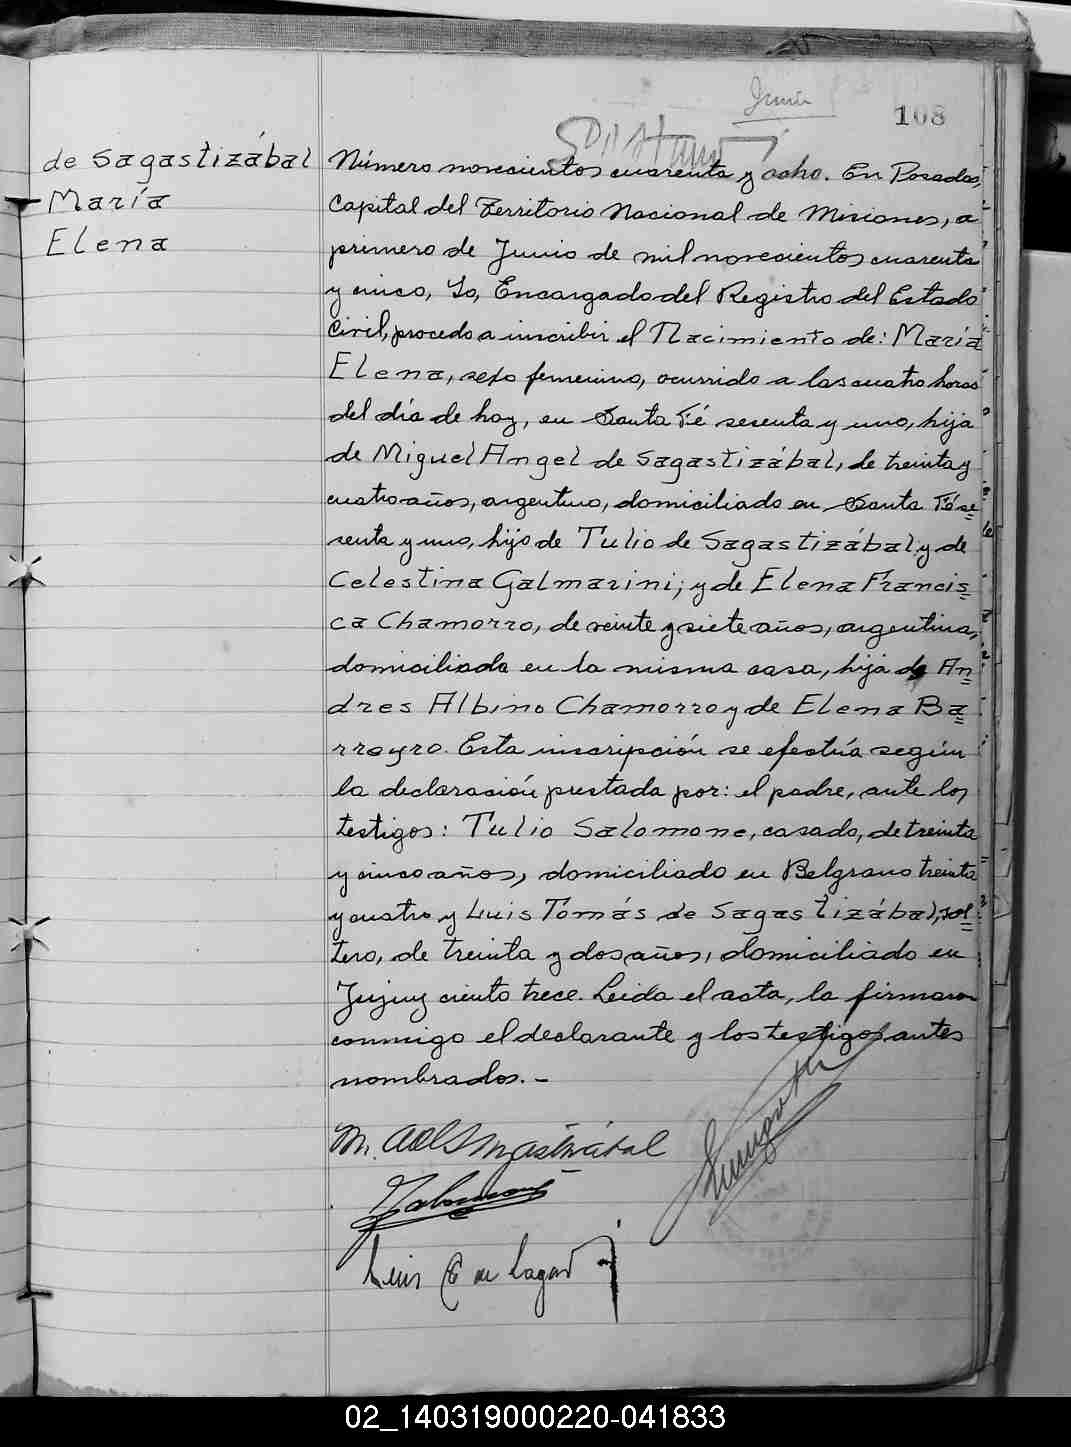 Junio
108
de Sagastizábal
María
Elena
Número novecientos cuarenta y ocho. En Posadas,
Capital del Territorio Nacional de Misiones, a
primero de Junio de mil novecientos cuarenta
y cinco, Yo, Encargado del Registro del Estado
Civil, procedo a inscribir el Nacimiento de: María
Elena, sexo femenino, ocurrido a las cuatro horas
del día de hoy, en Santa Fé sesenta y uno, hija
de Miguel Angel de Sagastizábal, de treinta y
cuatro años, argentino, domiciliado en Santa Fé se=
senta y uno, hijo de Tulio de Sagastizábal y de
Celestina Galmarini; y de Elena Francis=
ca Chamorro, de veinte y siete años, argentina,
domiciliada en la misma casa, hija de An=
dres Albino Chamorro y de Elena Ba=
rreyro. Esta inscripción se efectúa según
la declaración prestada por: el padre, ante los
testigos: Tulio Salomone, casado, de treinta
y cinco años, domiciliado en Belgrano treinta
y cuatro y Luis Tomás de Sagastizábal, sol=
tero, de treinta y dos años, domiciliado en
Jujuy ciento trece. Leida el acta, la firmaron
conmigo el declarante y los testigos antes
nombrados. –
Salomone
Luis
02_140319000220-041833